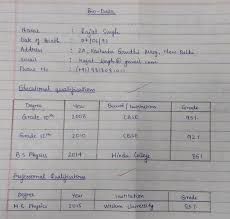 Bio-Data
Name : Rajat Singh
Date of Birth : 04/04/92
Address : 2A, Kasturba Gandhi Marg, New Delhi
Email : Rajat.singh@gmail.com
Phone No : (+91)
Educational qualifications
Degree Year Board / Institution Grade
Grade 10th 2008 CBSE 95%
Grade 12th 2010 CBSE 92%
B.S Physics 2014 Hindu College 85%
Professional Qualifications
Degree Year Institution Grade
M.S Physics 2015 University 85%